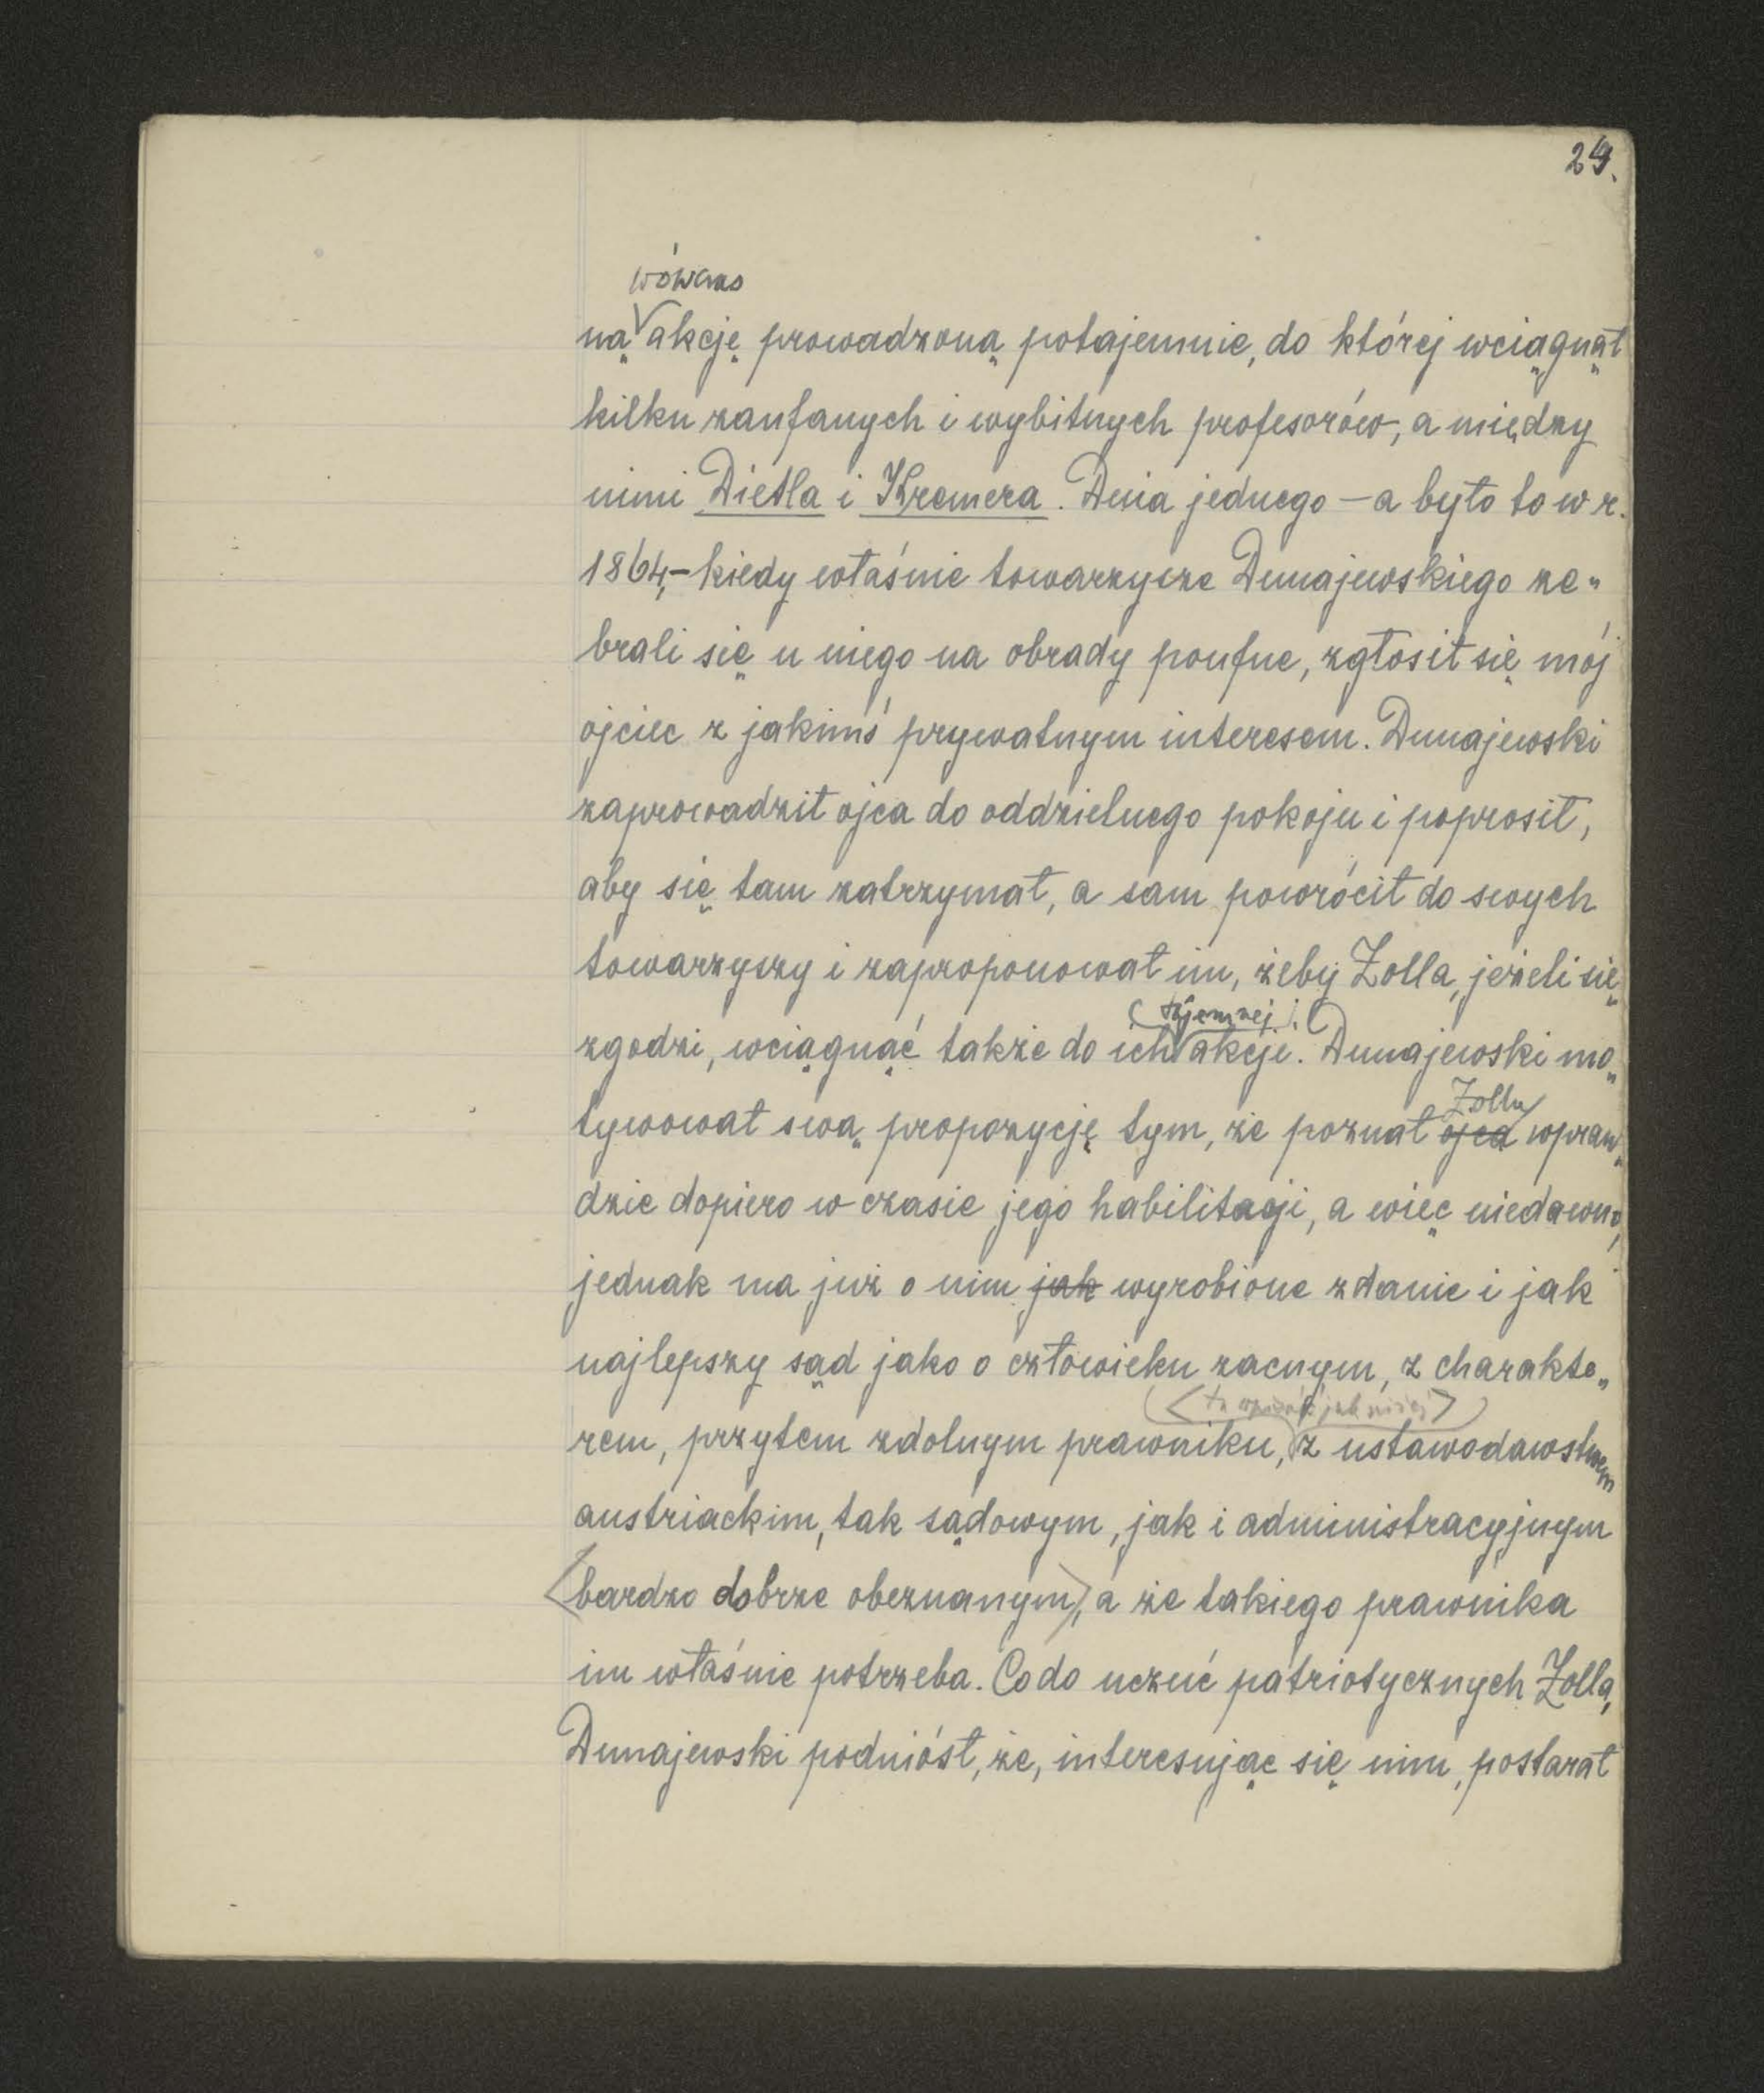 24.
wówczas
ną akcję prowadzoną potajemnie, do której wciągnął
kilku zaufanych i wybitnych profesorów, a między
nimi Dietla i Kremera. Dnia jednego — a było to w r.
1864, – kiedy właśnie towarzysze Dunajewskiego ze„
brali się u niego na obrady poufne, zgłosił się mój
ojciec z jakimś prywatnym interesem. Dunajewski
zaprowadził ojca do oddzielnego pokoju i poprosił,
aby się tam zatrzymał, a sam powrócił do swych
towarzyszy i zaproponował im, żeby Zolla, jeżeli się
(tajemnej)
zgodzi, wciągnąć także do ich akcji. Dunajewski mo„
Zolla
tywował swą propozycję tym, że poznał ojca wpraw„
dzie dopiero w czasie jego habilitacji, a więc niedawno,
jednak ma już o nim jak wyrobione zdanie i jak
najlepszy sąd jako o człowieku zacnym, z charakte„
<tu wpisać jak niżej>
rem, przytem zdolnym prawniku, z ustawodawstwem
austriackim, tak sądowym, jak i administracyjnym
<bardzo dobrze obeznanym>, a że takiego prawnika
im właśnie potrzeba. Co do uczuć patriotycznych Zolla,
Dunajewski podniósł, że, interesując się nim, postarał